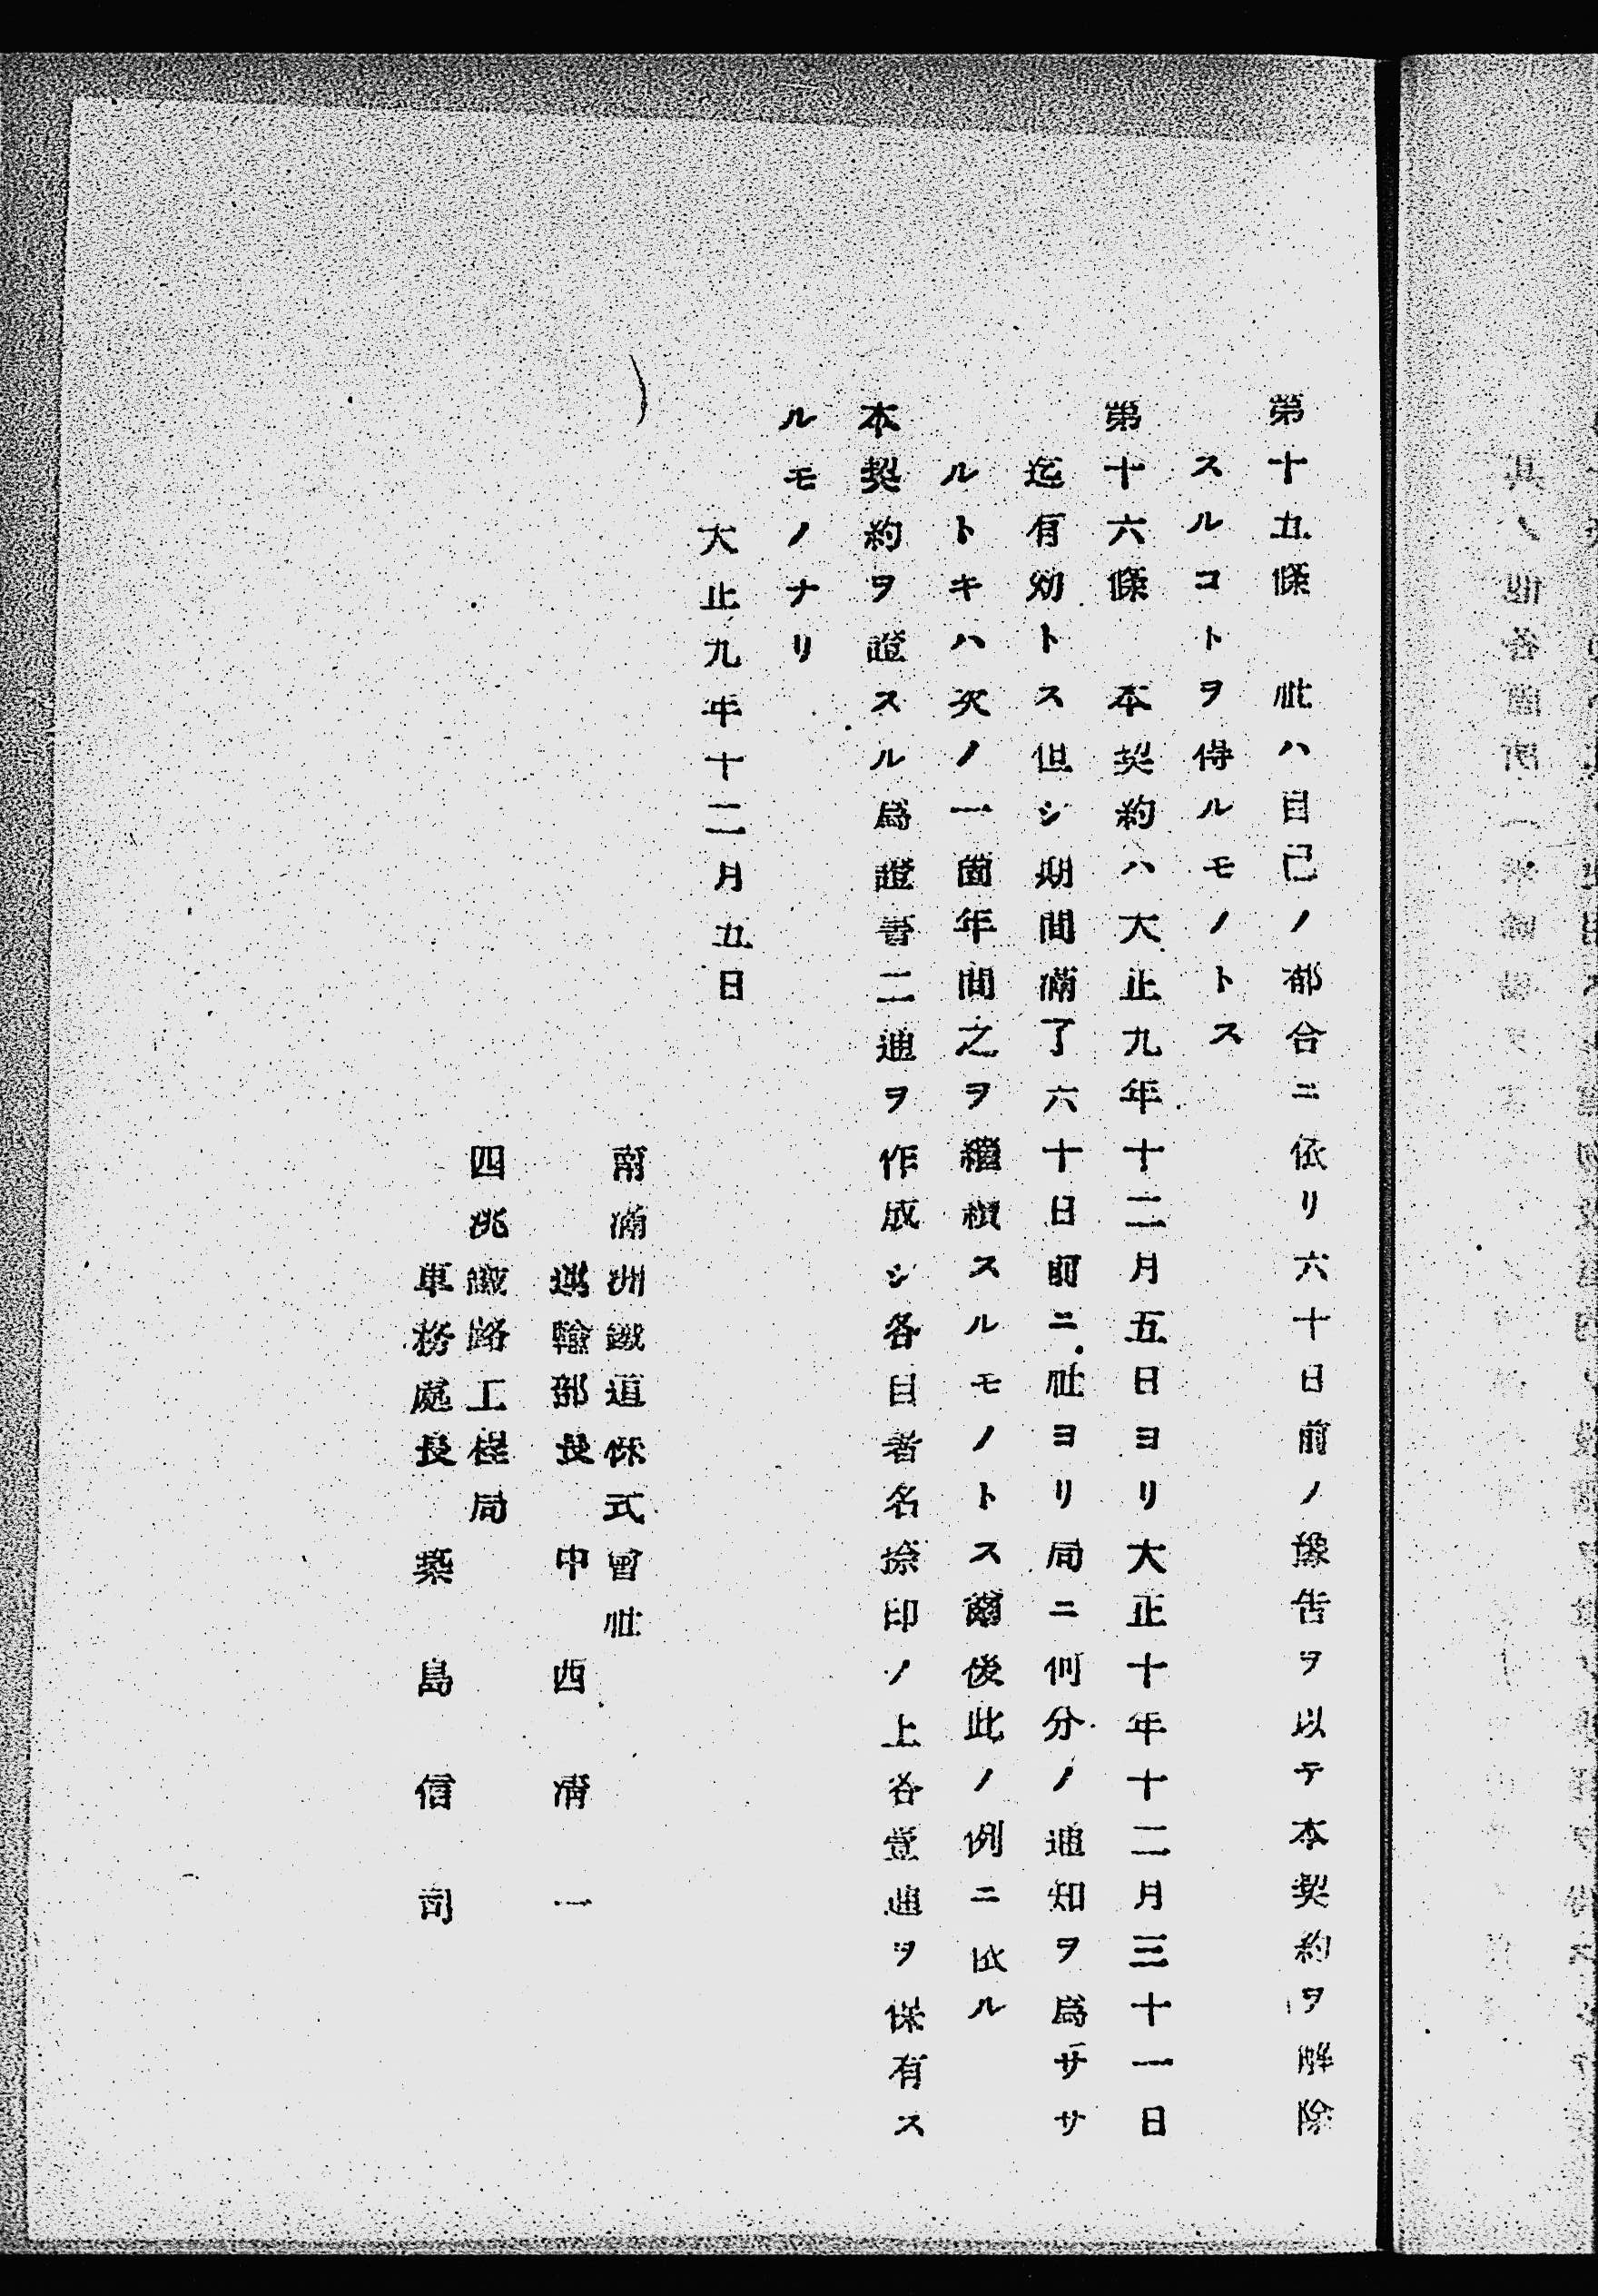 第十五條　社ハ自己ノ都合ニ依リ六十日前ノ豫告ヲ以テ本契約ヲ解除
スルコトヲ得ルモノトス
第十六條　本契約ハ大正九年十二月五日ヨリ大正十年十二月三十一日
迄有効トス但シ期間滿了六十日前ニ社ヨリ局ニ何分ノ通知ヲ爲ササ
ルトキハ次ノ一箇年間之ヲ繼續スルモノトス爾後此ノ例ニ依ル
本契約ヲ證スル爲證書二通ヲ作成シ各自署名捺印ノ上各壹通ヲ保有ス
ルモノナリ
大正九年十二月五日
南滿洲鐵道株式會社
運輸部長　中西淸一
四洮鐵路工程局
車務處長　築島信司